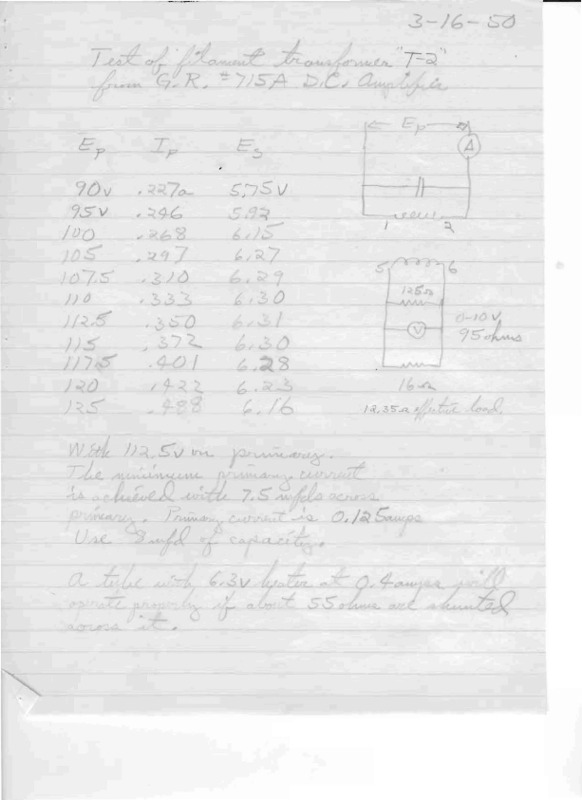 3-16-50
Test of filament transformer "T-2"
from G.R. #715A D.C. Amplifier
Ep Ip Es
90v .227a 5.75V
95v .246 5.92
100 .268 6.15
105 .297 6.27
107.5 .310 6.29
110 .333 6.30
112.5 .350 6.31
115 .372 6.30
117.5 .401 6.28
120 .422 6.23
125 .488 6.16
Ep
A
1 2
5 6
125Ω
V
0-10V
95 ohms
16Ω
12.35Ω effective load.
With 112.5v on primary.
The minimum primary current
is achieved with 7.5 mfds across
primary. Primary current is 0.125amps
Use 8 mfd of capacity.
A tube with 6.3v heater at 0.4 amps will
operate properly if about 55 ohms are shunted
across it.